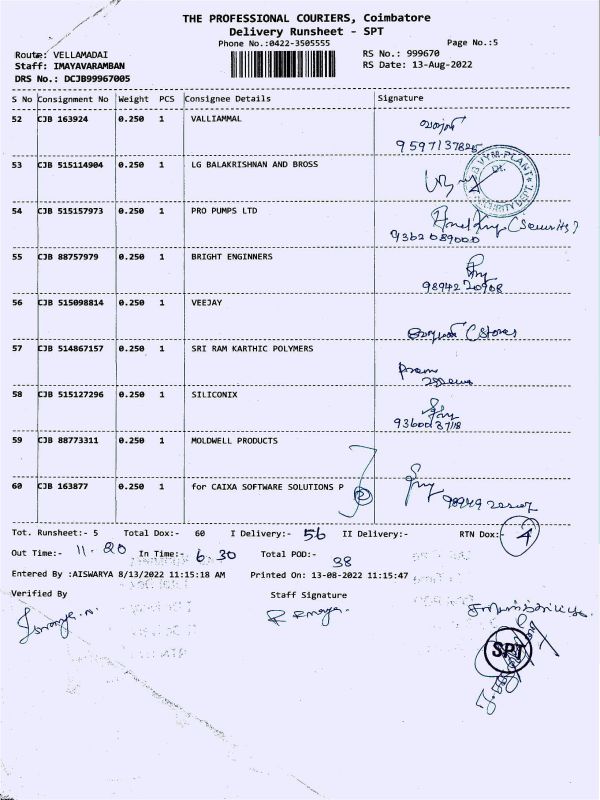 THE PROFESSIONAL COURIERS, Coimbatore
Delivery Runsheet - SPT
Phone No.:0422-3505555
Page No.:5
Route: VELLAMADAI
RS No.: 999670
Staff: IMAYAVARAMBAN
RS Date: 13-Aug-2022
DRS No.: DCJB99967005
S No Consignment No Weight PCS Consignee Details Signature
52 CJB 163924 0.250 1 VALLIAMMAL
53 CJB 515114904 0.250 1 LG BALAKRISHNAN AND BROSS
54 CJB 515157973 0.250 1 PRO PUMPS LTD
9362089000
55 CJB 88757979 0.250 1 BRIGHT ENGINNERS
56 CJB 515098814 0.250 1 VEEJAY
57 CJB 514867157 0.250 1 SRI RAM KARTHIC POLYMERS
58 CJB 515127296 0.250 1 SILICONIX
59 CJB 88773311 0.250 1 MOLDWELL PRODUCTS
60 CJB 163877 0.250 1 for CAIXA SOFTWARE SOLUTIONS P
Tot. Runsheet:- 5 Total Dox:- 60 I Delivery:- 56 II Delivery:- RTN Dox:- 4
Out Time:- 11.20 In Time:- 6.30 Total POD:- 38
Entered By :AISWARYA 8/13/2022 11:15:18 AM Printed On: 13-08-2022 11:15:47
Verified By Staff Signature
SPT